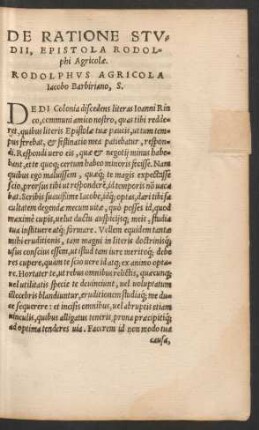 DE RATIONE STV-
DII, EPISTOLA RODOL-
phi Agricolæ.
RODOLPHVS AGRICOLA
Iacobo Barbiriano, S.
DEDI Coloniã discedens literas Ioanni Rin
co, cõmuni amico nostro, quas tibi redde-
ret, quibus literis Epistolæ tuæ paucis, ut tum tem-
pus ferebat, & festinatio mea patiebatur, respon-
di. Respondi uero eis, quæ & negotij minus habe-
bant, et te quoq; certum habeo mireris fecisse. Nam
quibus ego maluissem, quæq; te magis expectisse
scio, prorsus tibi ut respondere, id temporis nõ uaca-
bat. Scribis suauissime Iacobe, idq; optas, dari tibi fa-
cultatem degendæ mecum uitæ, quò posses id, quod
maximè cupis, uelut ductu auspicijsq; meis, studia
tua instituere atq; formare. Vellem equidem tantæ
mihi eruditionis, tam magni in literis doctrinisq;
usus conscius essem, ut istud tam iure meritoq; debe-
res cupere, quam te scio uere id atq; ex animo opta-
re. Hortarer te, ut rebus omnibus relictis, quæcunq;
uel utilitatis specie te deuinciunt, uel uoluptatum
illecebris blandiuntur, eruditionem studiaq; me du-
ce sequerere: et incisis omnibus, uel abruptis etiam
uinculis, quibus alligatus teneris, prona præcipitiq;
ad optima tenderes uia. Facerem id non modo tua
causa,